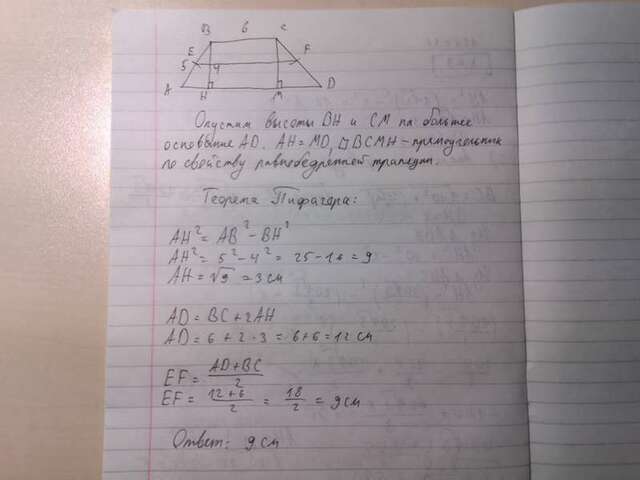 B 6 C
E F
5 4
A H M D
Опустим высоты BH и CM на большее
основание AD. AH = MD, ▱BCMH – прямоугольник
по свойству равнобедренной трапеции.
Теорема Пифагора:
AH² = AB² – BH²
AH² = 5² – 4² = 25 – 16 = 9
AH = √9 = 3 см
AD = BC + 2AH
AD = 6 + 2 · 3 = 6+6 = 12 см
EF = (AD+BC)/2
EF = (12+6)/2 = 18/2 = 9 см
Ответ: 9 см